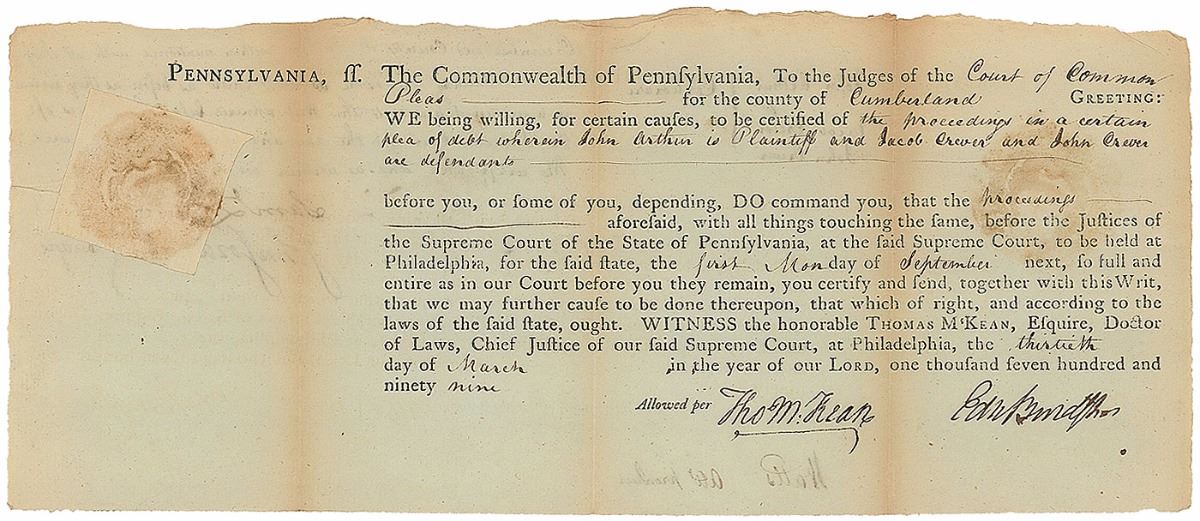 PENNSYLVANIA, ſſ. The Commonwealth of Pennſylvania, To the Judges of the Court of Common
Pleas for the county of Cumberland GREETING:
WE being willing, for certain cauſes, to be certified of the proceedings in a certain
plea of debt wherein John Arthur is Plaintiff and Jacob Crever and John Crever
are defendants
before you, or ſome of you, depending, DO command you, that the proceedings
aforeſaid, with all things touching the ſame, before the Juſtices of
the Supreme Court of the State of Pennſylvania, at the ſaid Supreme Court, to be held at
Philadelphia, for the ſaid ſtate, the first Monday of September next, ſo full and
entire as in our Court before you they remain, you certify and ſend, together with this Writ,
that we may further cauſe to be done thereupon, that which of right, and according to the
laws of the ſaid ſtate, ought. WITNESS the honorable THOMAS M‘KEAN, Eſquire, Doctor
of Laws, Chief Juſtice of our ſaid Supreme Court, at Philadelphia, the thirtieth
day of March in the year of our LORD, one thouſand ſeven hundred and
ninety nine
Allowed per Tho M:Kean